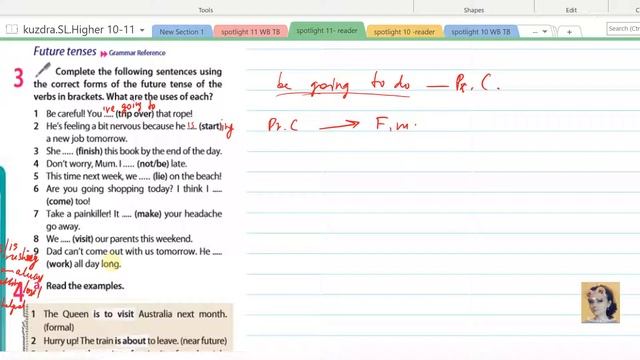 Tools
Shapes
Colors
kuzdra.SL.Higher 10-11
New Section 1
spotlight 11 WB TB
spotlight 11- reader
spotlight 10 -reader
spotlight 10 WB TB
Future tenses Grammar Reference
3 Complete the following sentences using
the correct forms of the future tense of the
verbs in brackets. What are the uses of each?
've going to
1 Be careful! You ..... (trip over) that rope!
2 He's feeling a bit nervous because he is (start)ing
a new job tomorrow.
3 She ..... (finish) this book by the end of the day.
4 Don't worry, Mum. I ..... (not/be) late.
5 This time next week, we ..... (lie) on the beach!
6 Are you going shopping today? I think I .....
(come) too!
7 Take a painkiller! It ..... (make) your headache
go away.
8 We ..... (visit) our parents this weekend.
9 Dad can't come out with us tomorrow. He .....
(work) all day long.
4 a Read the examples.
1 The Queen is to visit Australia next month.
(formal)
2 Hurry up! The train is about to leave. (near future)
be going to do — Pr. C.
Pr. C → F. m.